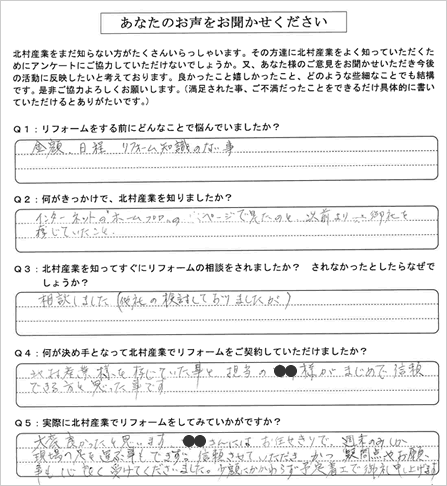 あなたのお声をお聞かせください
北村産業をまだ知らない方がたくさんいらっしゃいます。その方達に北村産業をよく知っていただくため
にアンケートにご協力していただけないでしょうか。又、あなた様のご意見をお聞かせいただき今後
の活動に反映したいと考えております。良かったこと嬉しかったこと、どのような些細なことでも結構
です。是非ご協力よろしくお願いします。（満足された事、ご不満だったことをできるだけ具体的に書い
ていただけるとありがたいです。）
Q1：リフォームをする前にどんなことで悩んでいましたか？
金額、日程 リフォーム知識のない事
Q2：何がきっかけで、北村産業を知りましたか？
インターネットの"ホームプロ"の ページで見たのと 以前より 御社を
存じていたこと.
Q3：北村産業を知ってすぐにリフォームの相談をされましたか？ されなかったとしたらなぜで
しょうか？
相談しました（他社の検討もしておりましたが）
Q4：何が決め手となって北村産業でリフォームをご契約していただけましたか？
北村産業様を存じていた事と 担当の ●●様がまじめで信頼
できる方と思った事です
Q5：実際に北村産業でリフォームをしてみていかがですか？
大変良かったと思います。●●さんには お任せきりで、週末のみしか
現場へ足を運ぶ事もできず。信頼させていただき、かつ 疑問点やお願い
事も 受けてくださいました。少額にかかわらず 御礼申し上げます